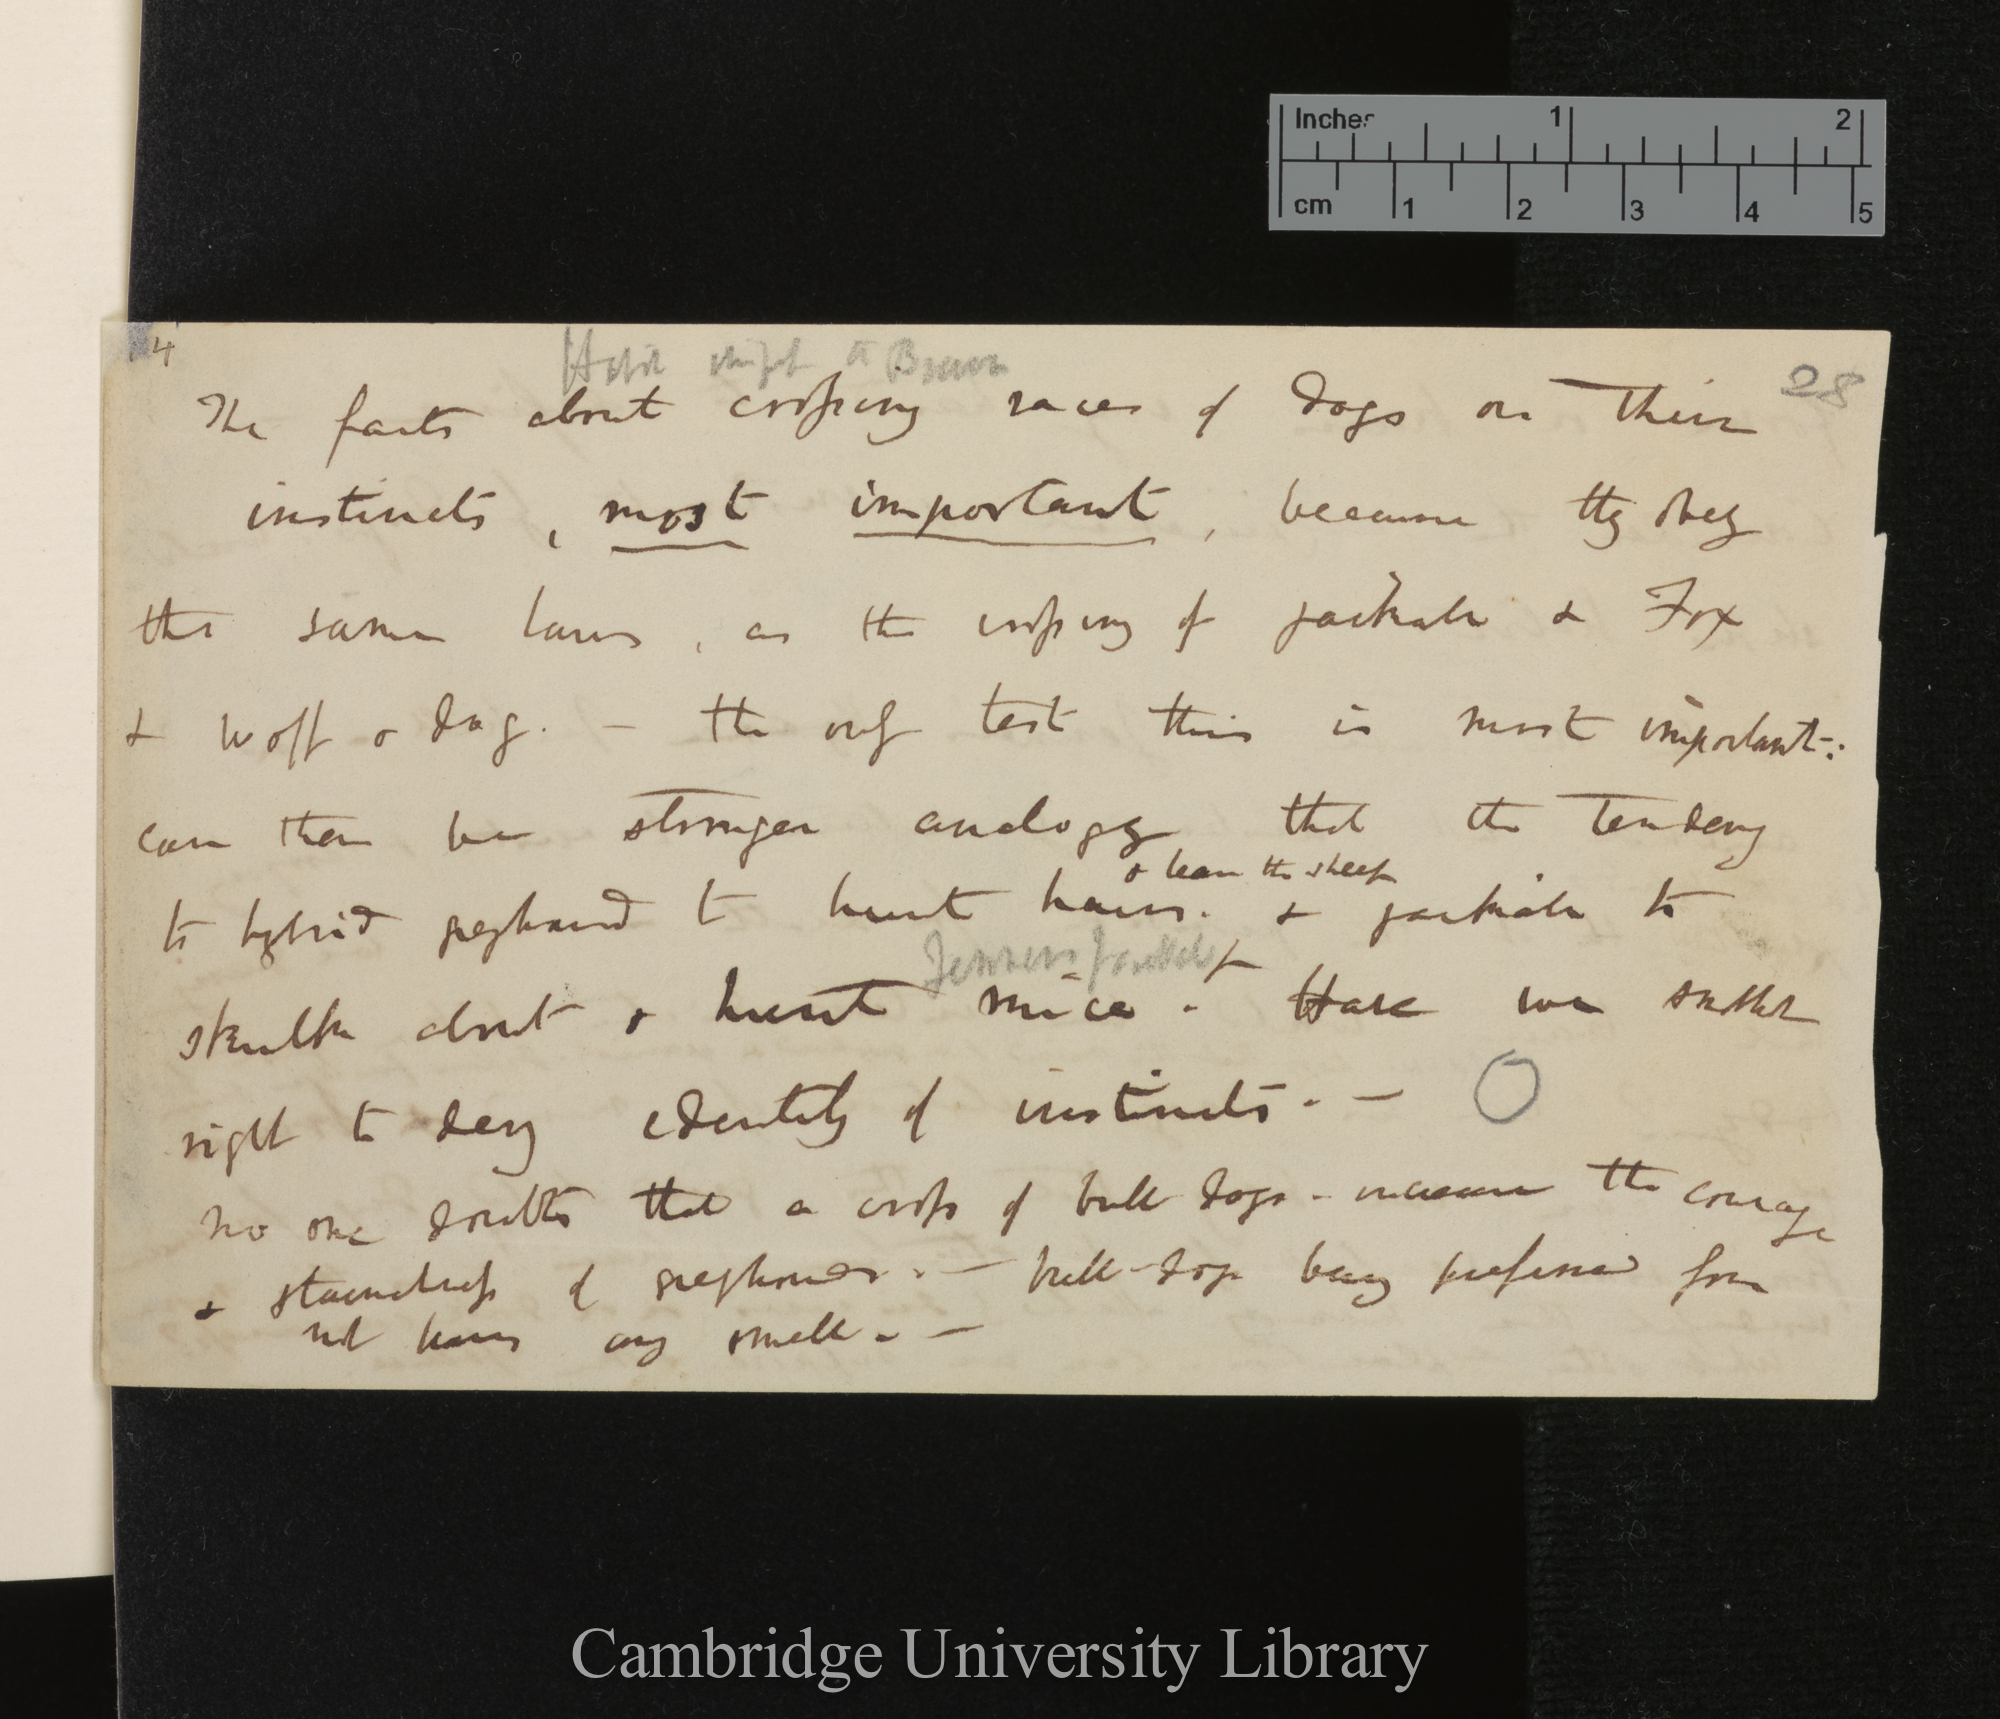 Inches 1 2
cm 1 2 3 4 5
4
28
The facts about crossing races of dogs on their
instincts, most important, because they obey
the same laws, as the crossing of jackals & Fox
& wolf & dog. — the only test this is most important:
can there be stronger analogy that the tendency
& leave the sheep
to hybrid greyhound to hunt hares. & jackals to
Jenners Jackals
skulk about & hunt mice. Have we smallest
right to deny identity of instincts. —
No one doubts that a cross of bull dogs - increase the courage
& staunchness of greyhounds. — bull-dogs being preferred from
not having any smell. —
Cambridge University Library